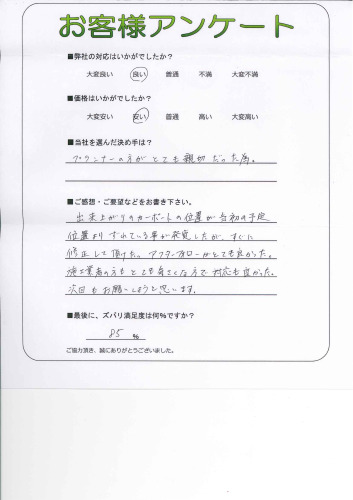 お客様アンケート
■弊社の対応はいかがでしたか？
大変良い 良い 普通 不満 大変不満
■価格はいかがでしたか？
大変安い 安い 普通 高い 大変高い
■当社を選んだ決め手は？
プランナーの方がとても親切だった為。
■ご感想・ご要望などをお書き下さい。
出来上がりのカーポートの位置が当初の予定
位置よりずれている事が発覚したが、すぐに
修正して頂けた。アフターフォローがとても良かった。
施工業者の方もとても気さくな方で対応も良かった。
次回もお願いしようと思います。
■最後に、ズバリ満足度は何％ですか？
85 %
ご協力頂き、誠にありがとうございました。